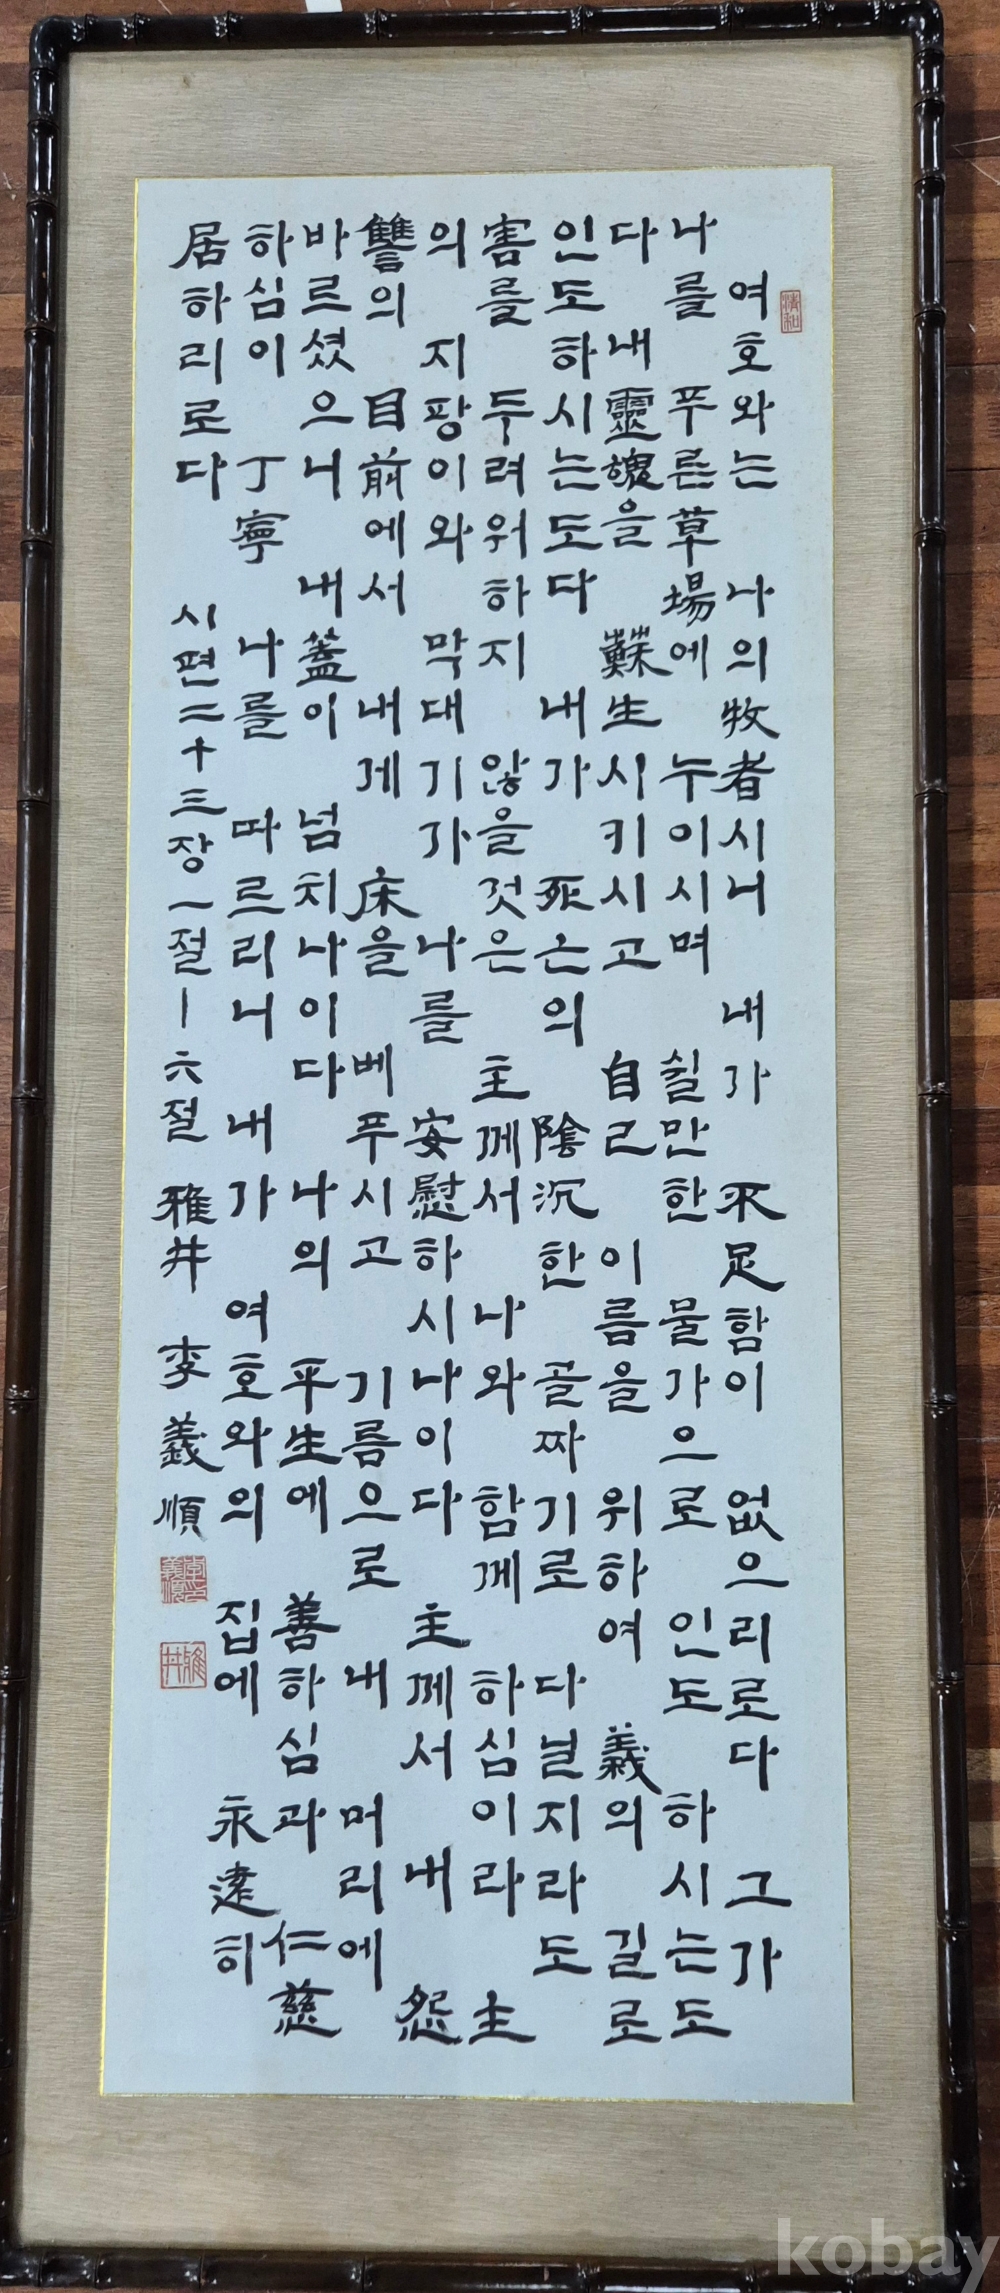 清和
여호와는 나의 牧者시니 내가 不足함이 없으리로다 그가
나를 푸른 草場에 누이시며 쉴만한 물가으로 인도 하시는도
다 내 靈魂을 蘇生시키시고 自己 이름을 위하여 義의 길로
인도하시는도다 내가 死亡의 陰沉한 골짜기로 다닐지라도
害를 두려워하지 않을 것은 主께서 나와 함께 하심이라 主
의 지팡이와 막대기가 나를 安慰하시나이다 主께서 내 怨
讐의 目前에서 내게 床을 베푸시고 기름으로 내 머리에
바르셨으니 내 蓋이 넘치나이다 나의 平生에 善하심과 仁慈
하심이 丁寧 나를 따르리니 내가 여호와의 집에 永遠히
居하리로다 시편二十三장一절ㅣ六절 雅井 李義順
李義順印
雅井
kobay